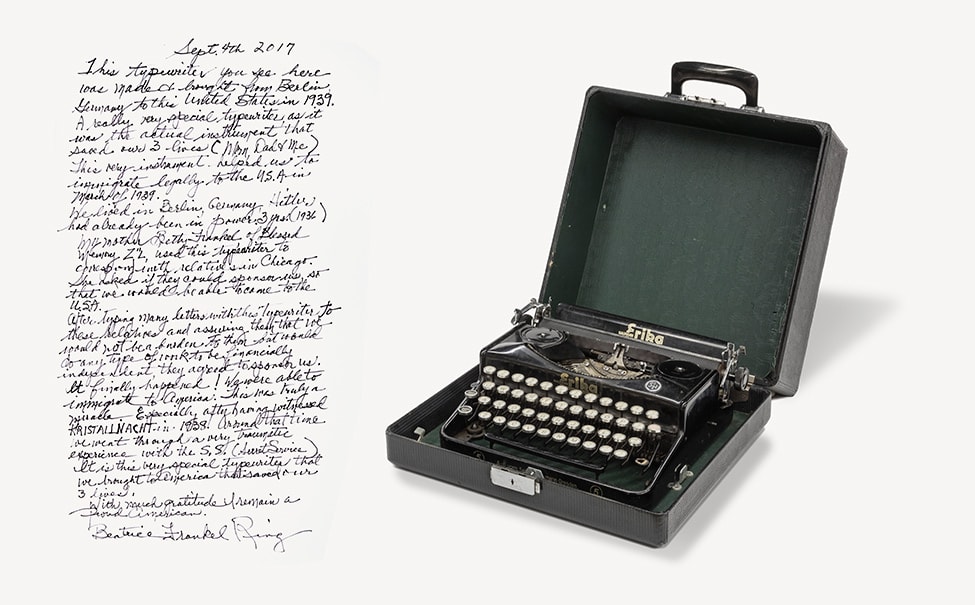 Sept. 4th 2017
This typewriter you see here
was made & brought from Berlin,
Germany to this United States in 1939.
A really very special typewriter, as it
was the actual instrument that
saved our 3 lives (Mom, Dad & Me)
This very instrument helped us to
immigrate legally to the U.S.A in
March of 1939.
We lived in Berlin, Germany. Hitler
had already been in power 3 yrs. (1936)
My mother Betty Frankel of Blessed
Memory Z"L, used this typewriter to
correspond with relatives in Chicago.
She asked if they could sponsor us, so
that we would be able to come to the
U.S.A.
After typing many letters with this typewriter to
these relatives and assuring them that we
would not be a burden to them but would
do any type of work to be financially
independent, they agreed to sponsor us.
It finally happened! We were able to
immigrate to America. This was truly a
miracle. Especially after having witnessed
KRISTALLNACHT in 1938. Around that time
we went through a very traumatic
experience with the S.S. (Service)
It is this very special typewriter that
we brought to America that saved our
3 lives.
With much gratitude I remain a
proud American.
Beatrice Frankel Ring
Erika
Erika